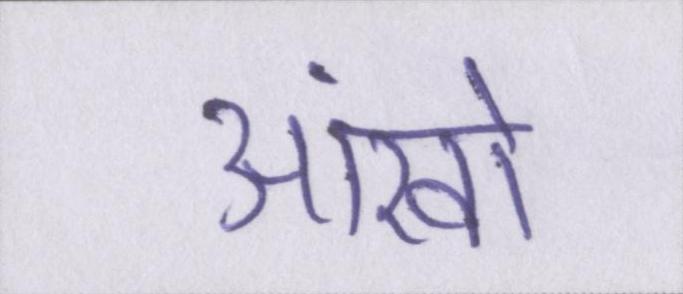 आंखो